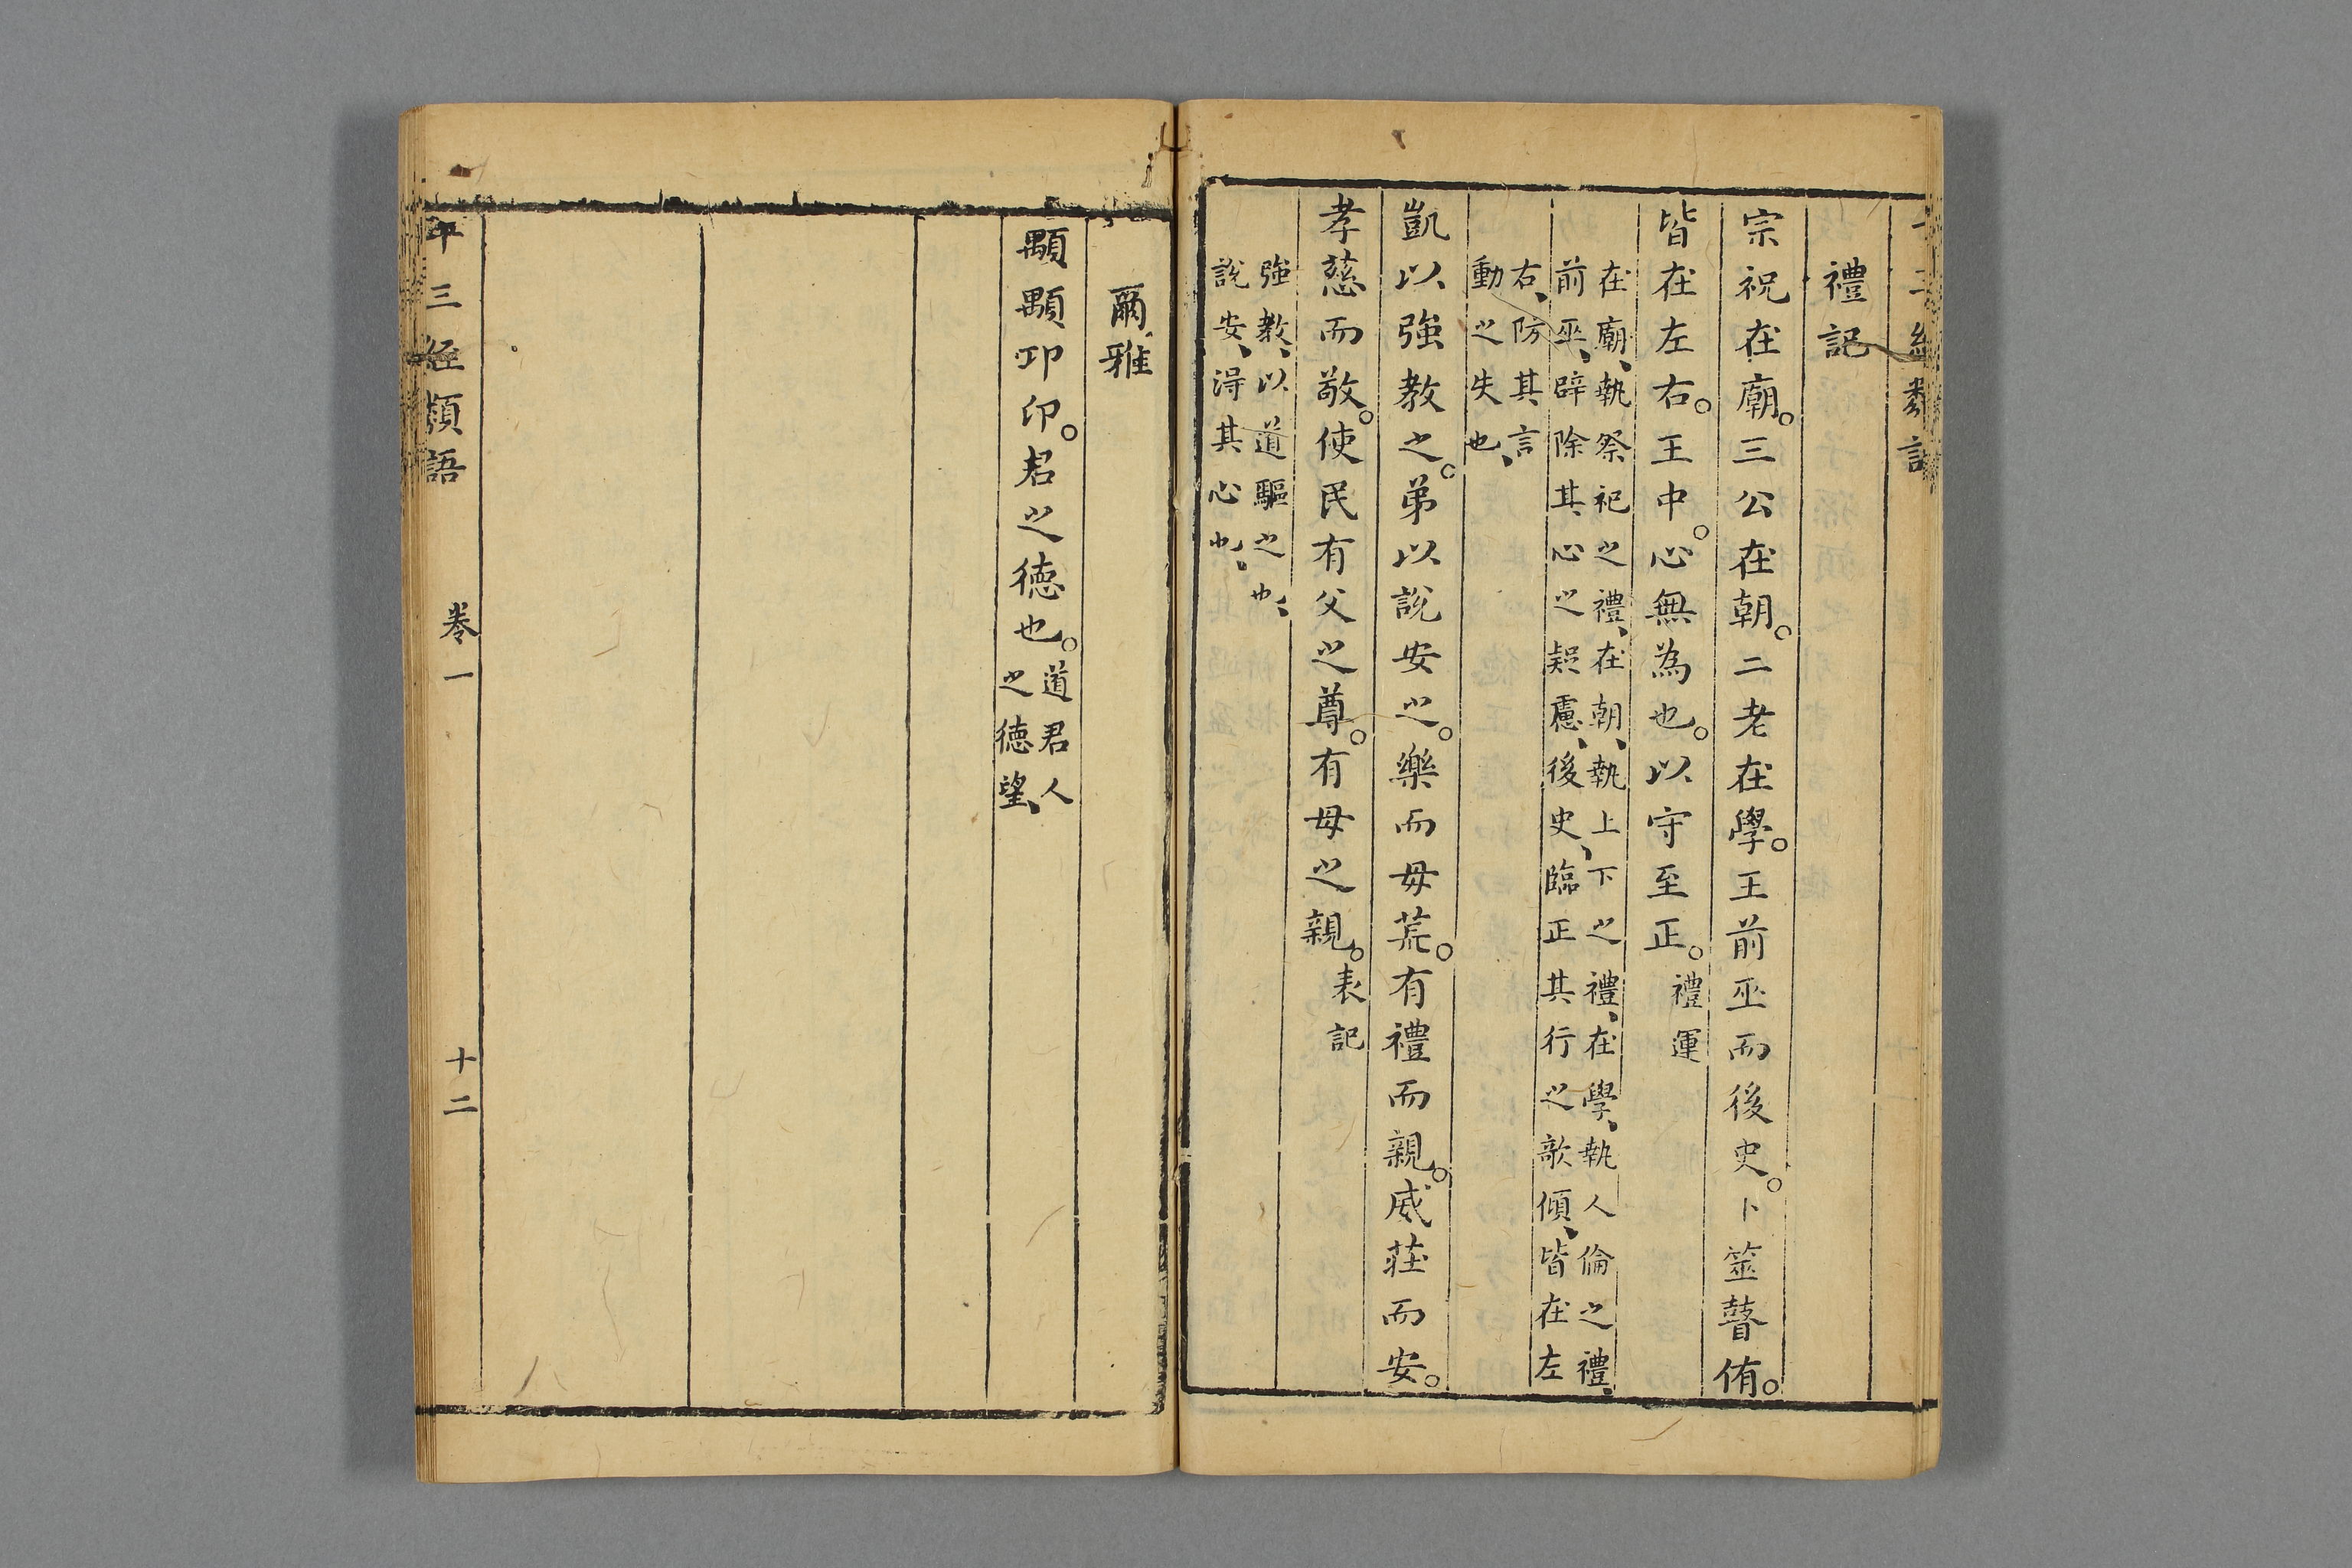 禮記
宗祝在廟。三公在朝。二老在學。王前巫而後史。卜筮瞽侑。
皆在左右。王中。心無為也。以守至正。禮運
在廟、執祭祀之禮、在朝、執上下之禮、在學、執人倫之禮、
前巫、辟除其心之疑慮、後史、臨正其行之欹傾、皆在左
右、防其言
動之失也、
凱以強教之。弟以說安之。樂而毋荒。有禮而親。威莊而安。
孝慈而敬。使民有父之尊。有母之親。表記
強教、以道驅之也、
說安、得其心也、
爾雅
顒顒卬卬。君之德也。道君人
之德望、
十三經類語 卷一 十二